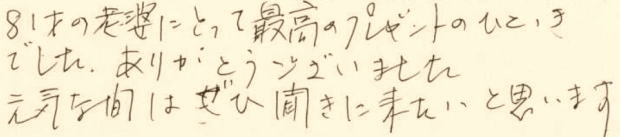 81才の老婆にとって最高のプレゼントのひととき
でした。ありがとうございました
元気な間はぜひ聞きに来たいと思います